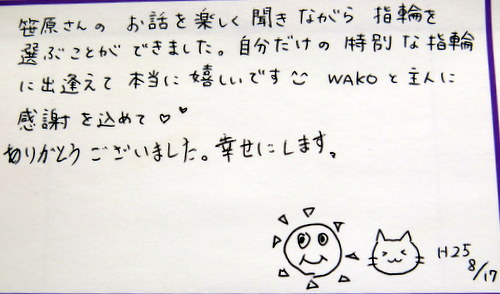 笹原さんの お話を楽しく聞きながら 指輪を
選ぶことが できました。自分だけの 特別な指輪
に出逢えて 本当に嬉しいです WAKOと主人に
感謝を込めて♡♥
ありがとうございました。幸せにします。
H25
8/17